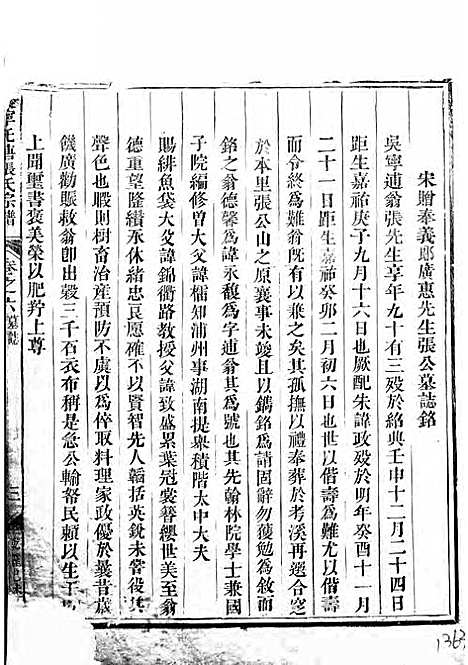 宋贈奉義郎廣惠先生張公墓誌銘
吳寧逋翁張先生享年九十有三歿於紹興壬申十二月二十四日
距生嘉祐庚子九月十六日也厥配朱諱政歿於明年癸酉十一月
二十一日距生嘉祐癸卯二月初六日也世以偕壽為難尤以偕壽
而令終為難翁則所有以兼之矣其孤撫以禮奉葬於考溪再遷合窆
於本里張公山之原襄事未竣且以鐫銘為請固辭勿獲勉為敘而
銘之翁德馨為諱永馥為字逋翁其為號也其先翰林院學士兼國
子院編修曾大父諱檽知浦州事湖南提舉積階太中大夫
賜緋魚袋大父諱錦衢路教授父諱致盛累葉冠裳簪纓世美至翁
德重望隆纘承休緒忠良愿繼不以賢智先人韜括英銳未嘗役其
聲色也暇則樹畜治產預防不虞以為倅取料理家政優於曩昔歲
饑廣勸賑救翁卽出穀三千石衣布稱是急公輸帑民賴以生于
上聞璽書褒美榮以肥羜上尊
張氏宗譜
卷之六 墓誌
1363